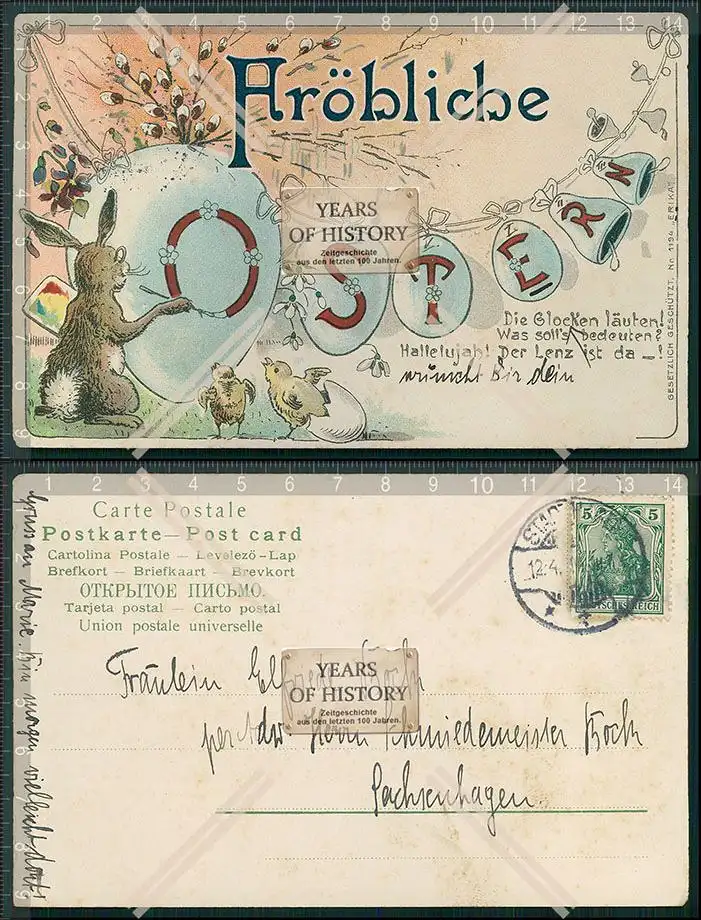 Fröhliche
OSTERN
YEARS
OF HISTORY
Zeitgeschichte
aus den letzten 100 Jahren.
Die Glocken läuten!
Was soll's bedeuten?
Hallelujah! Der Lenz ist da —!
wünscht Dir dein
GESETZLICH GESCHÜTZT. No 1194 „ERIKA"
Carte Postale
Postkarte — Post card
Cartolina Postale — Levelező-Lap
Brefkort — Briefkaart — Brevkort
ОТКРЫТОЕ ПИСЬМО.
Tarjeta postal — Carto postal
Union postale universelle
5 5
DEUTSCHES REICH
12.4.
Fräulein
YEARS
OF HISTORY
Zeitgeschichte
aus den letzten 100 Jahren.
per Adr Herrn Schmiedemeister Koch
Sachsenhagen.
Gruss an Marie. Bin morgen vielleicht dort